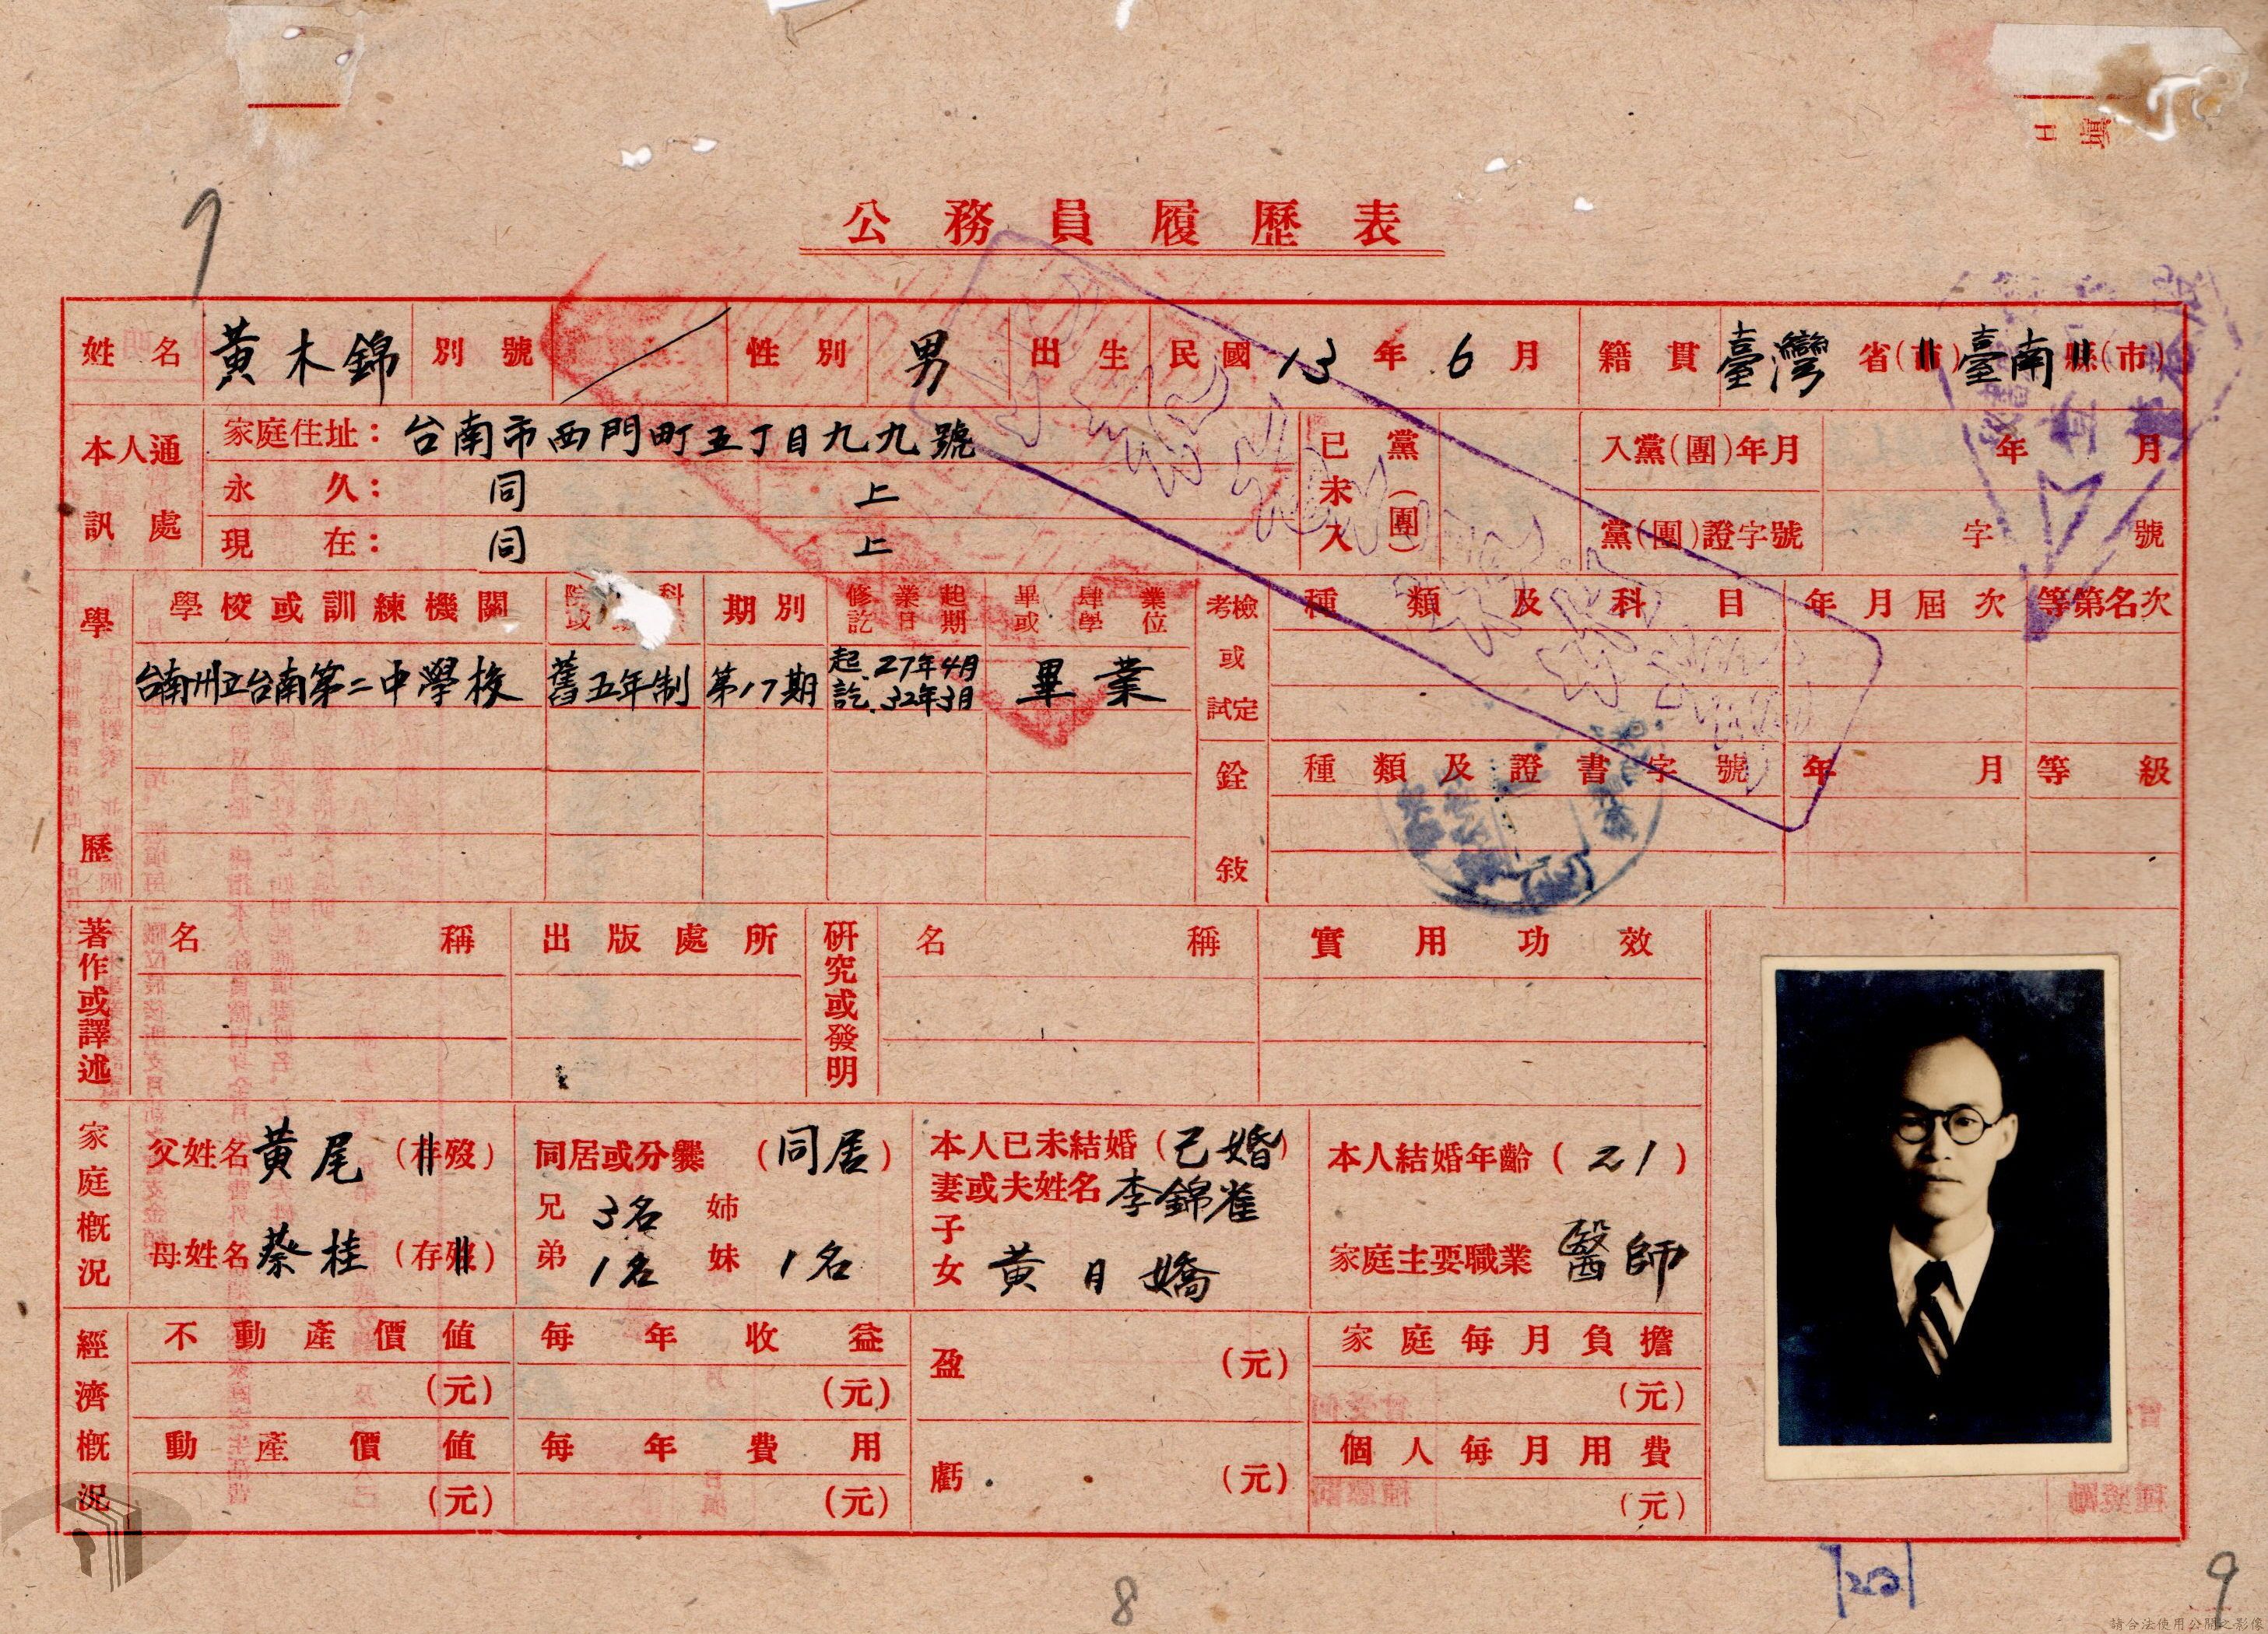 公務員履歷表
姓名 黃木錦 別號 性別 男 出生 民國13年6月 籍貫 臺灣省(市)臺南縣(市)
本人通訊處
家庭住址：台南市西門町五丁目九九號
永久：同上
現在：同上
已未入黨(團)
入黨(團)年月 年 月
黨(團)證字號 字 號
學歷
學校或訓練機關 期別 修業起訖日期 畢肄業或學位
台南州立台南第二中學校 舊五年制 第17期 起.27年4月 訖.32年3月 畢業
考試或檢定 種類及科目 年月屆次 等第名次
銓敍 種類及證書字號 年月 等級
著作或譯述 名稱 出版處所
研究或發明 名稱 實用功效
家庭概況
父姓名 黃尾 (存歿) 同居或分爨 (同居) 本人已未結婚(已婚) 本人結婚年齡(21)
妻或夫姓名 李錦雀
兄 3名 姉
母姓名 蔡桂 (存歿) 弟 1名 妹 1名 子女 黃月嬌 家庭主要職業 醫師
經濟概況
不動產價值 (元) 每年收益 (元) 盈 (元) 家庭每月負擔 (元)
動產價值 (元) 每年費用 (元) 虧 (元) 個人每月用費 (元)
8
9
請合法使用公開之影像